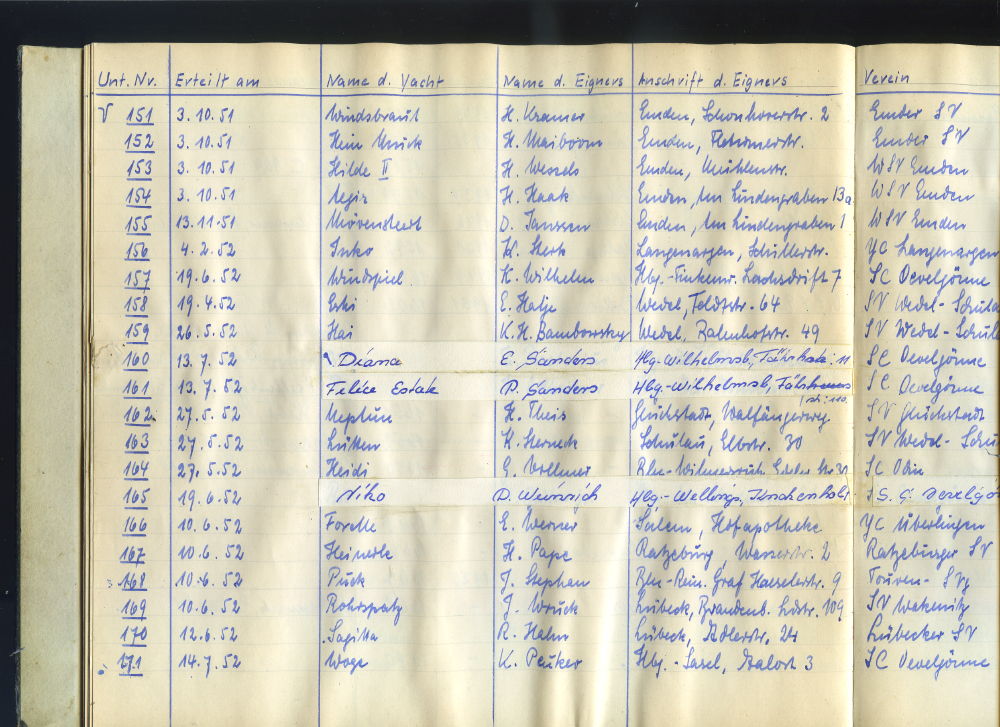 Unt. Nr. Erteilt am Name d. Yacht Name d. Eigners Anschrift d. Eigners Verein
V 151 3.10.51 Windsbraut H. Kramer Emden, 2 Emder SV
152 3.10.51 Hein Mück H. Maiboom Emden, Emder SV
153 3.10.51 Hilde II H. Wessels Emden, Mühlenstr. WSV Emden
154 3.10.51 Aegir H. Haak Emden, Am Lindengraben 13a WSV Emden
155 13.11.51 Mövenstert D. Janssen Emden, Am Lindengraben 1 WSV Emden
156 4.2.52 Inko K. Sterk Langenargen, Schillerstr. YC Langenargen
157 19.6.52 Windspiel K. Wilhelm Hbg.-Finkenw. Lachsdrift 7 SC Oevelgönne
158 19.4.52 E. Hatje Wedel, Feldstr. 64 SV Wedel-Schula
159 26.5.52 Hai K.H. Bambowsky Wedel, Bahnhofstr. 49 SV Wedel-Schul
160 13.7.52 Diana E. Sanders Hbg-Wilhelmsb, 11 SC Oevelgönne
161 13.7.52 Felice P. Sanders Hbg.-Wilhelmsb, SC Oevelgönne
162 27.5.52 Neptun H. Theis Glückstadt, Walfängerweg SV Glückstadt
163 27.5.52 Lütten K. Sterneck Schulau, Elbstr. 30 SV Wedel-Schu
164 27.5.52 Heidi G. Vollmer Bln-Wilmersdorf 31 SC Odin
165 19.6.52 Niko D. Weinrich Hbg.-Wellings, S.C. Oevelgö
166 10.6.52 Forelle E. Werner Salem, Hofapotheke YC Überlingen
167 10.6.52 Heiwerk H. Pape Ratzeburg Wasserstr. 2 Ratzeburger SV
168 10.6.52 Puck J. Stephan Bln-Rein. Graf Haeselerstr. 9
169 10.6.52 Rohrspatz J. Wruck Lübeck, Brandenb. Ldstr. 109 SV Wakenitz
170 12.6.52 Sagitta R. Hahn Lübeck, Adlerstr. 24 Lübecker SV
171 14.7.52 Woge K. Peuker Hbg.-Sasel, 3 SC Oevelgönne